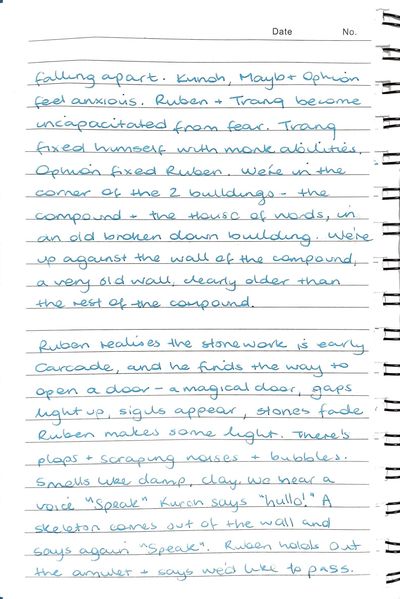 Date No.
falling apart. Kunoh, Mayb + Ophion
feel anxious. Ruben + Trang become
incapacitated from fear. Trang
fixed humself with monk abilities.
Ophion fixed Ruben. We're in the
corner of the 2 buildings - the
compound + the House of words, in
an old broken down building. We're
up against the wall of the compound,
a very old wall, clearly older than
the rest of the compound.
Ruben realises the stonework is early
Carcade, and he finds the way to
open a door - a magical door, gaps
light up, sigils appear, stones fade
Ruben makes some light. There's
plops + scraping noises + bubbles.
Smells like damp, clay. We hear a
voice "Speak" says "hullo!" A
skeleton comes out of the wall and
says again "Speak". Ruben holds out
the amulet + says we'd like to pass.